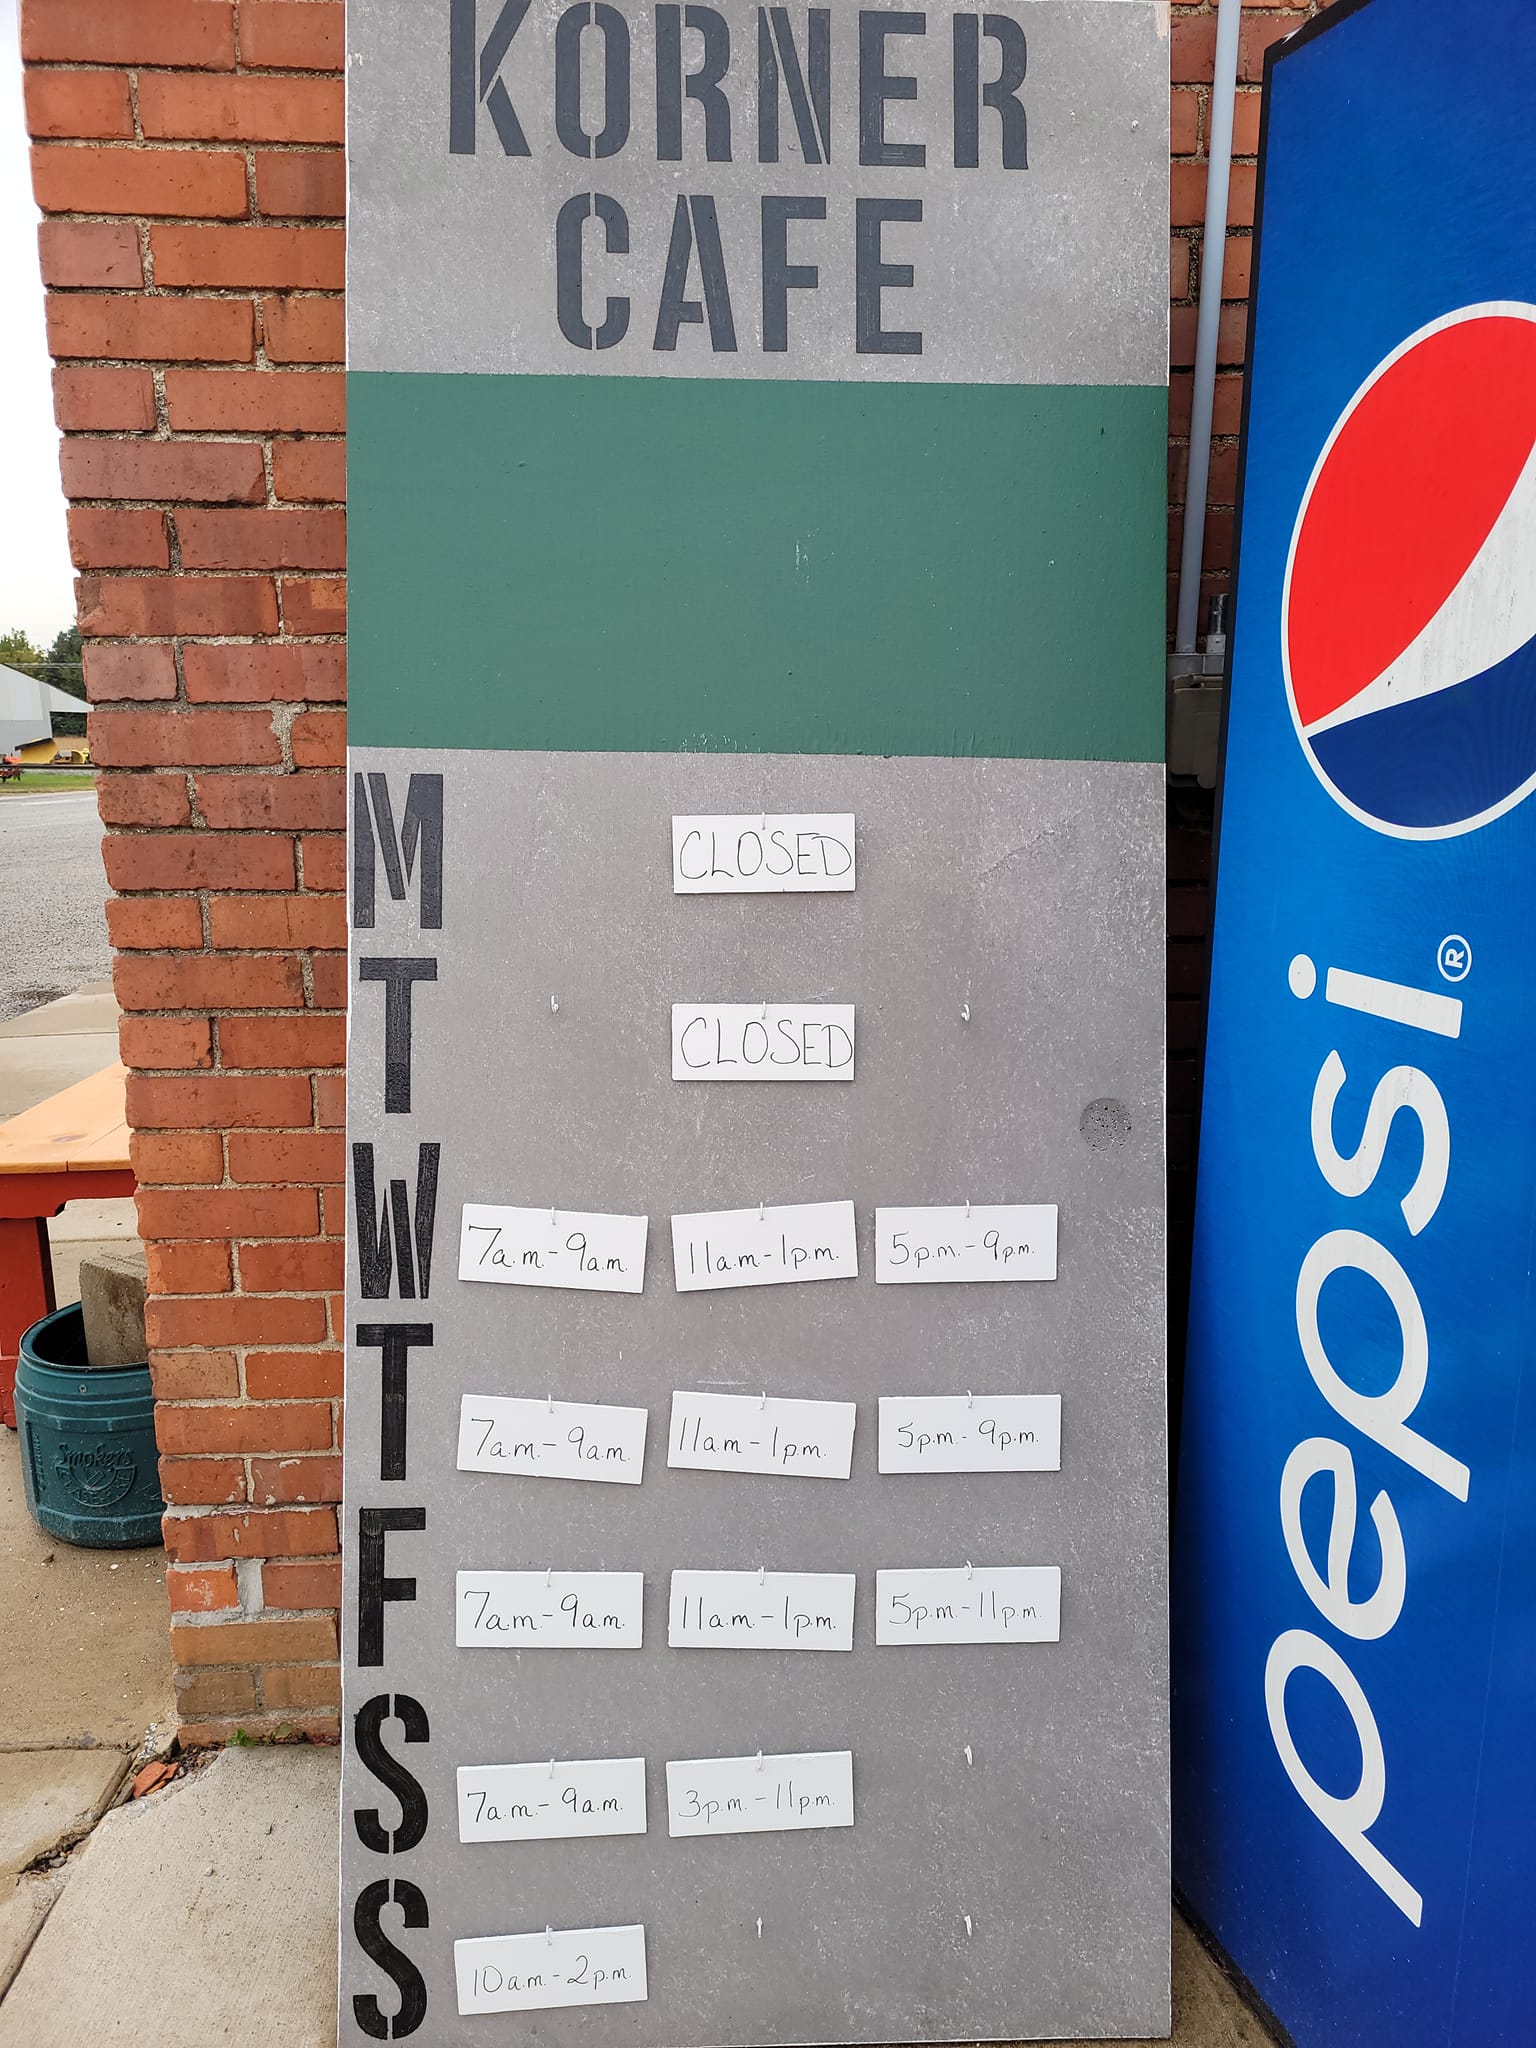 KORNER
CAFE
M CLOSED
T CLOSED
W 7a.m.-9a.m. 11a.m-1p.m. 5p.m.-9p.m.
T 7a.m.-9a.m. 11a.m-1p.m. 5p.m.-9p.m.
F 7a.m.-9a.m. 11a.m-1p.m. 5p.m-11p.m.
S 7a.m.-9a.m. 3p.m.-11p.m.
S 10a.m.-2p.m.
pepsi®
Smokers